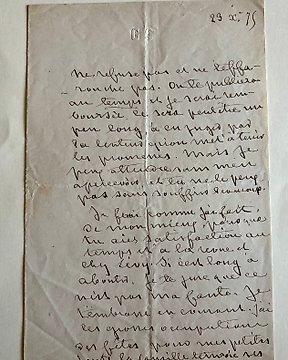 29 X. 75
Ne refuse pas et ne t'effa-
rouche pas. On te publiera
au temps et je serai rem-
boursée. Ce sera peut-être un
peu long, à en juger par
la lenteur qu'on met à tenir
les promesses. Mais je
peux attendre sans m'en
apercevoir, et tu ne le peux
pas sans souffrir beaucoup.
Je ferai comme j'ai fait,
de mon mieux pour que
tu aies satisfaction au
temps et à la revue et
chez Lévy. Si c'est long à
aboutir, je te jure que ce
n'est pas ma faute. Je
t'embrasse en courant. J'ai
les grosses occupations
des fêtes pour mes petites
toute la famille